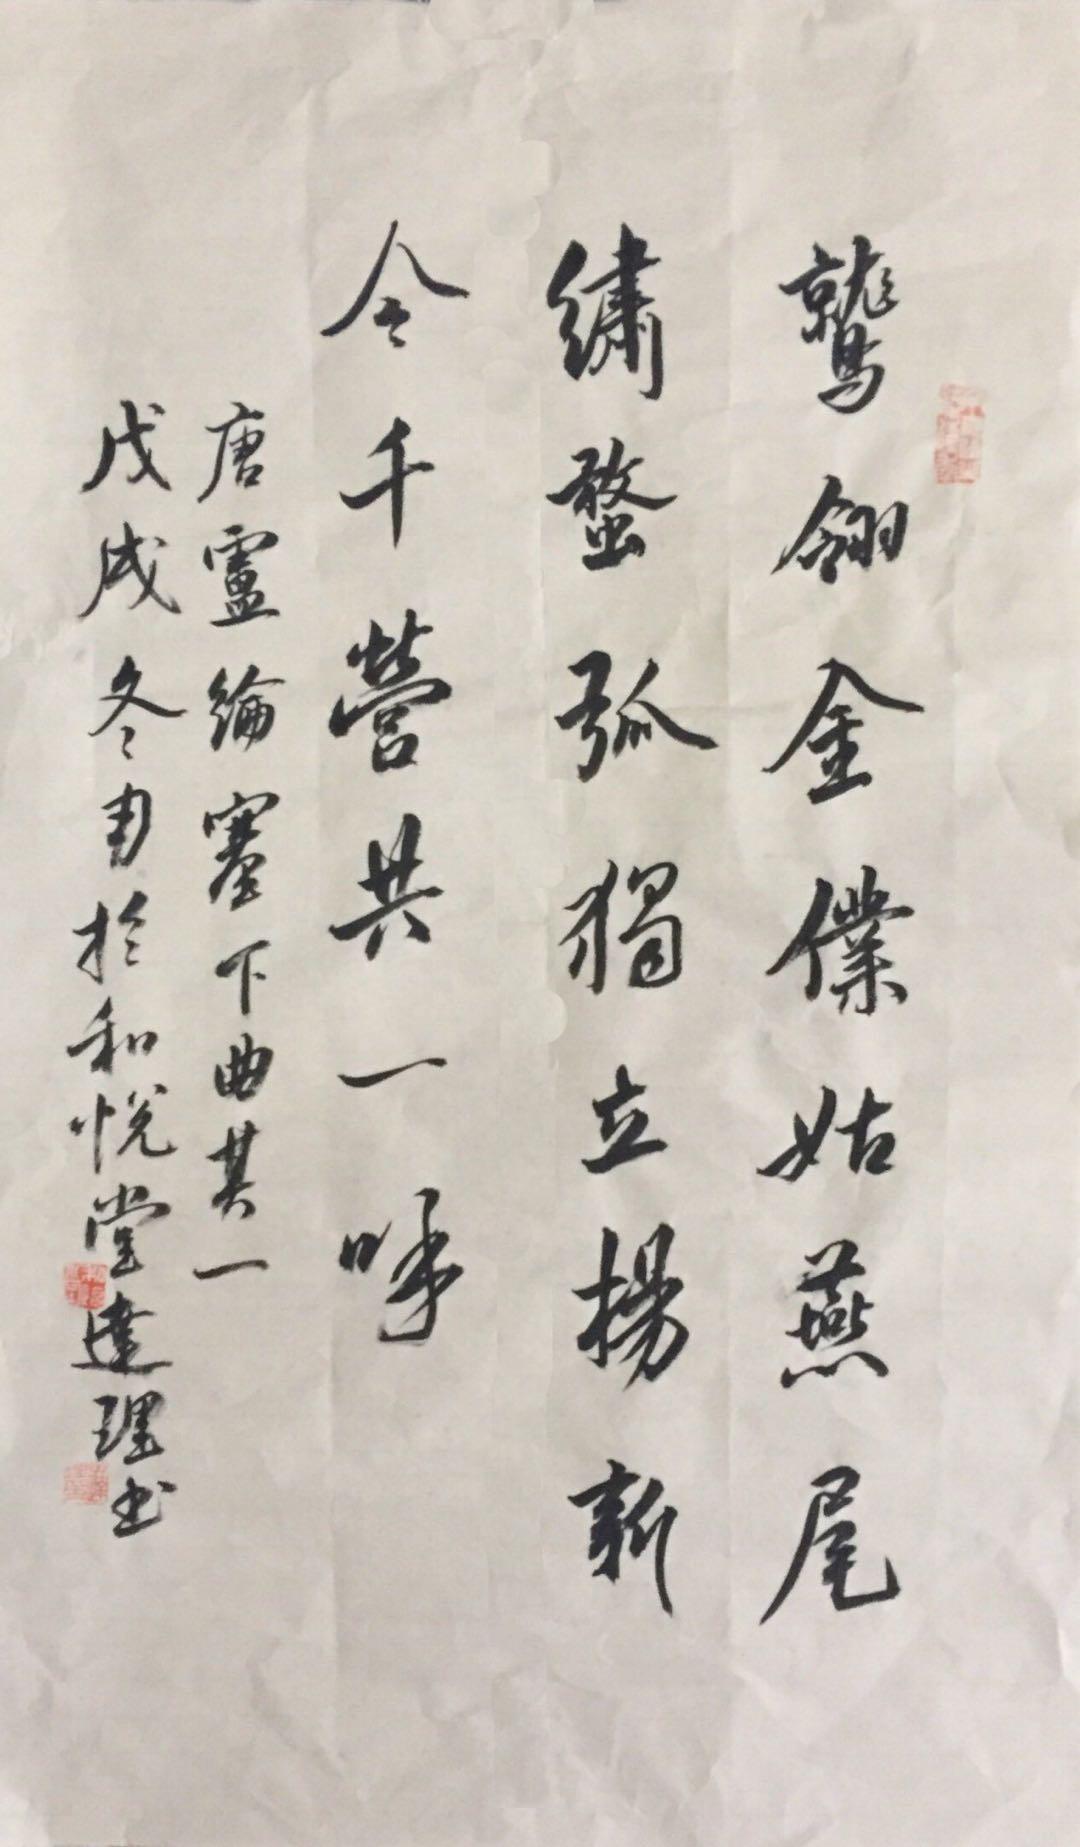 鷲翎金僕姑燕尾
繡蝥弧獨立揚新
令千營共一呼
唐盧綸塞下曲其一
戊戌冬於和悅堂達理书